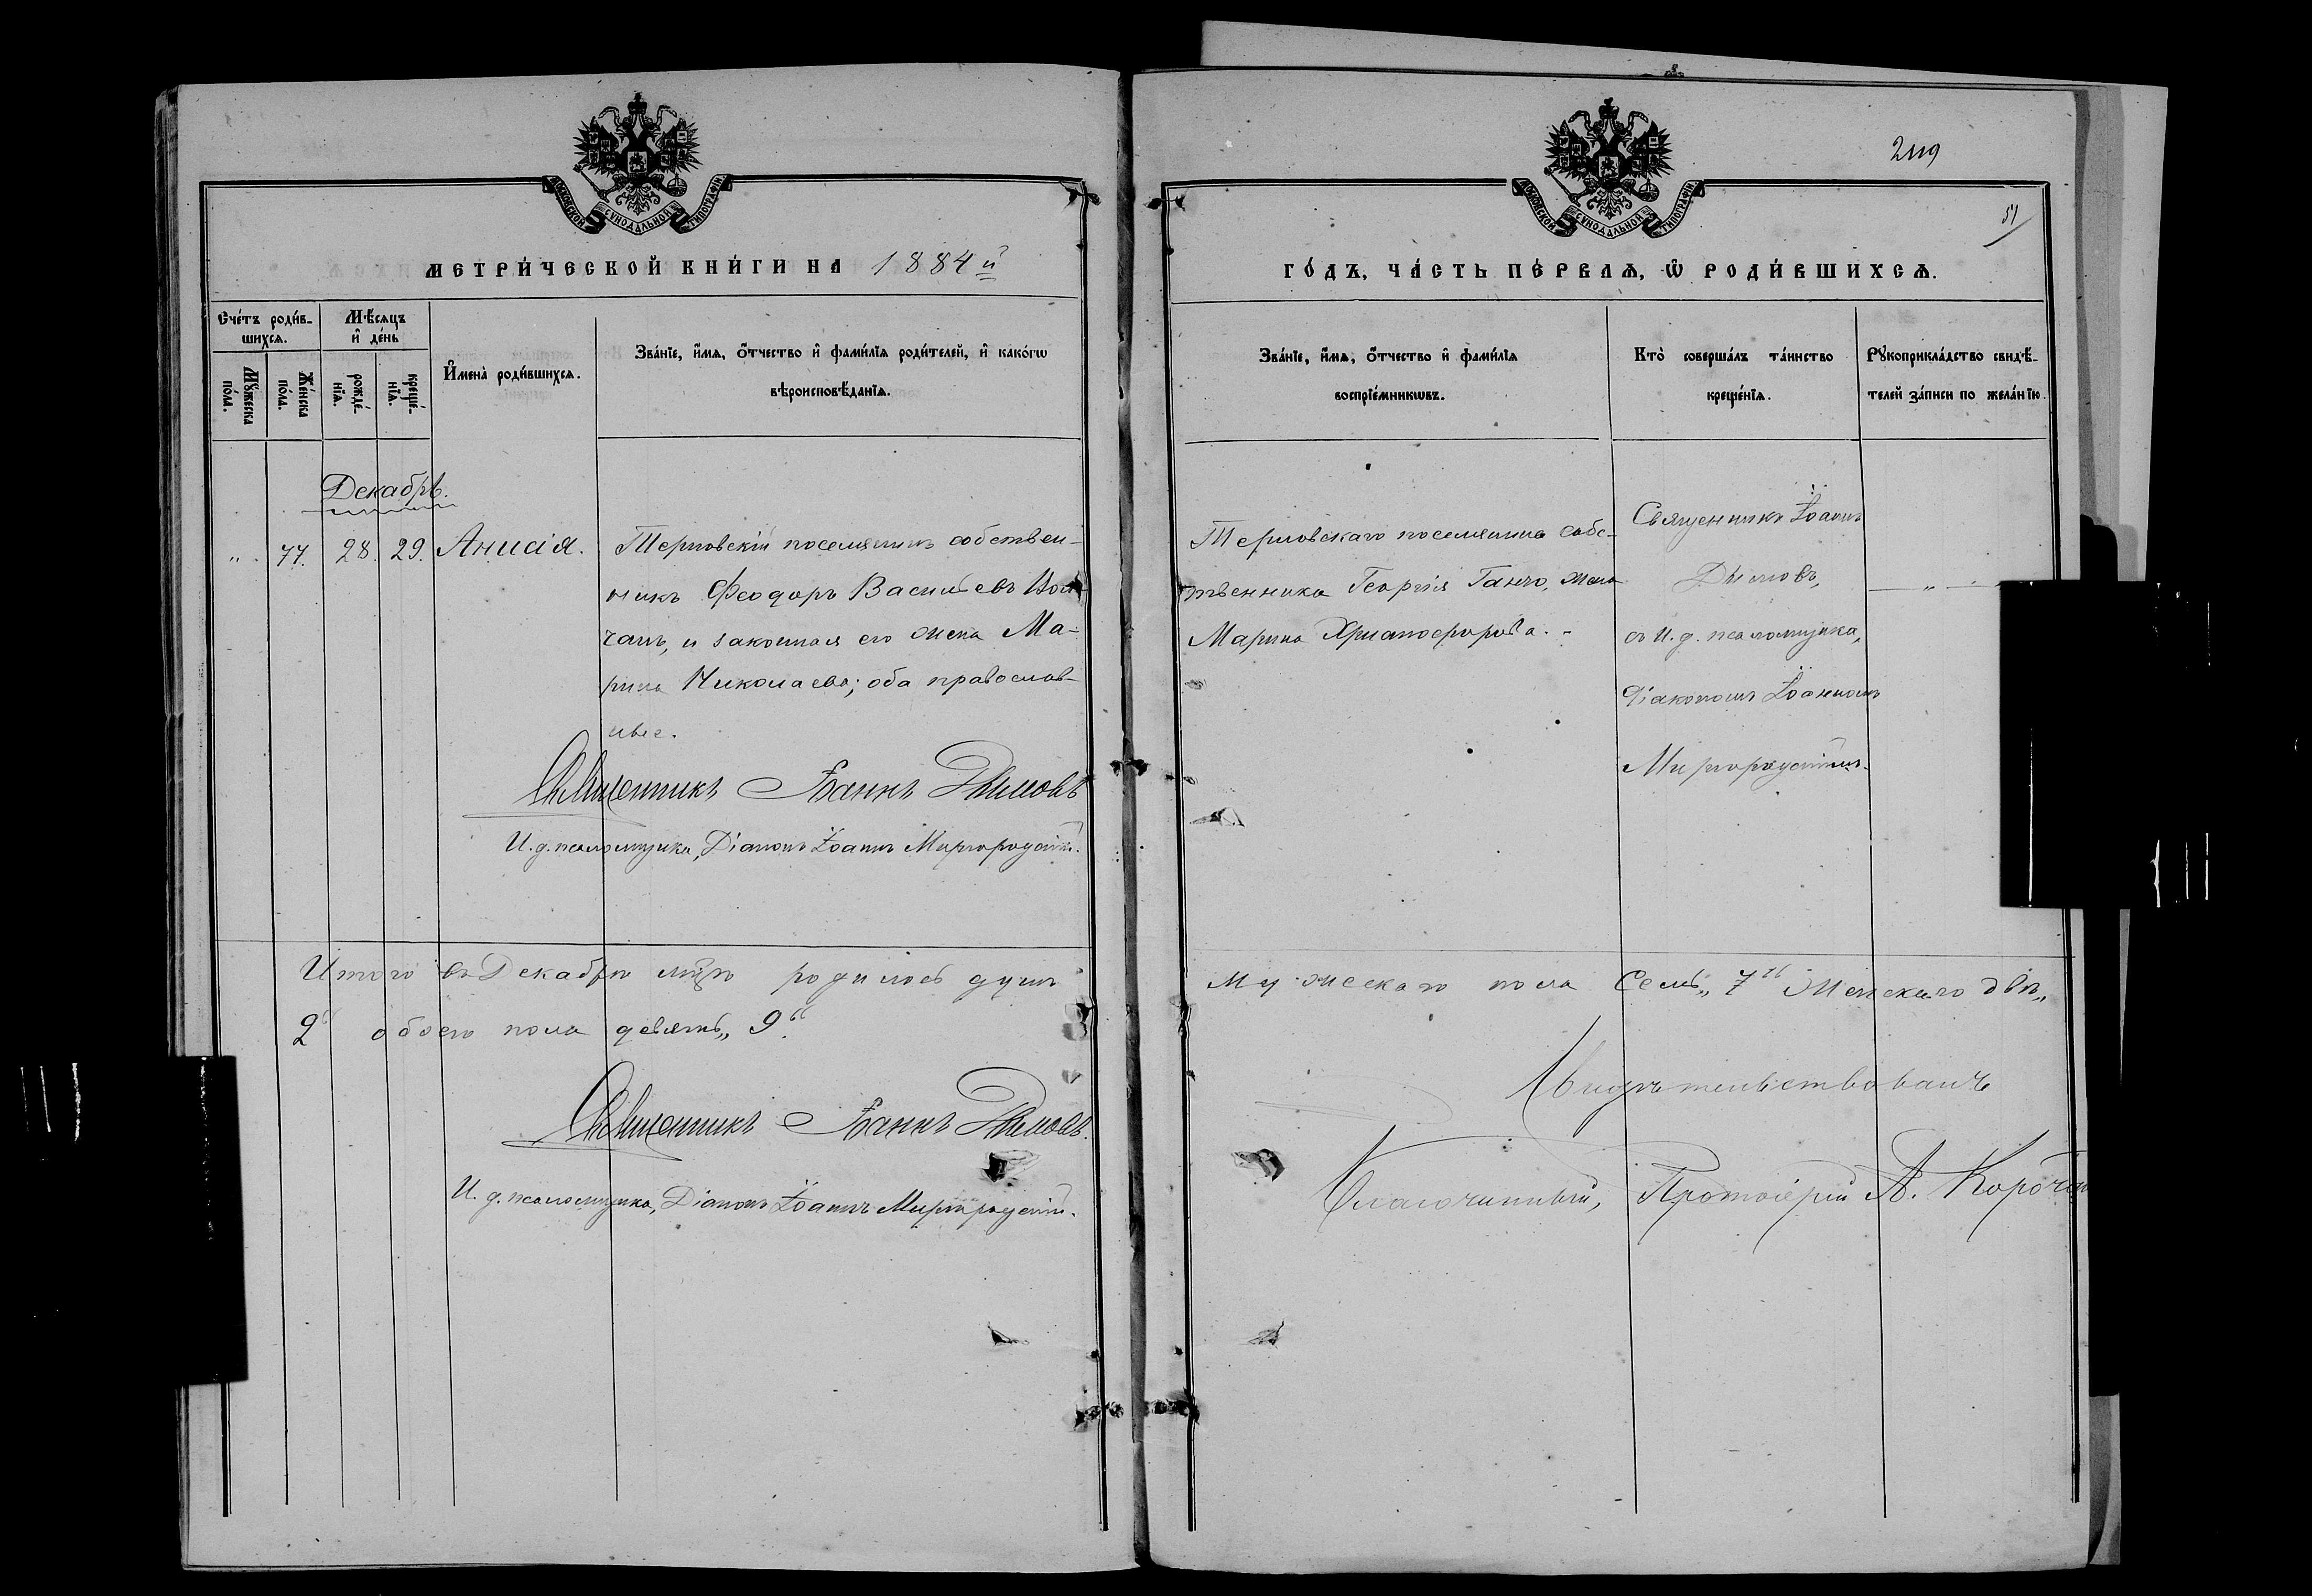 МОСКОВСКОЙ СѴНОДАЛЬНОЙ ТИПОГРАФІИ
МЕТРИ́ЧЕСКОЙ КНИ́ГИ НА 1884й
Сче́тъ роди́в-
шихсѧ.
Мѣ́сѧцъ
и҆ де́нь
Мꙋ́жеска
по́ла.
Же́нска
по́ла.
рожде́-
нїѧ.
креще́-
нїѧ.
И҆мена̀ роди́вшихсѧ.
Зва́нїе, и҆́мѧ, ѻ҆́тчество и҆ фами́лїѧ роди́телей, и҆ како́гѡ
вѣроисповѣ́данїѧ.
Декабрь.
„ 77. 28. 29. Анисія.
Терновскій поселянинъ собствен-
никъ Ѳеодоръ Васильевъ
чанъ, и законная его жена Ма-
рина Николаева; оба православ-
ные.
Священникъ Іоаннъ Дымовъ
И. д. псаломщика, Діаконъ Іоаннъ Миргородскій.
Итого въ Декабрѣ мцѣ родилось душъ
2" обоего пола девять„ 9".
Священникъ Іоаннъ Дымовъ.
И. д. псаломщика, Діаконъ Іоаннъ Миргородскій.
МОСКОВСКОЙ СѴНОДАЛЬНОЙ ТИПОГРАФІИ
51
ГО́ДЪ, ЧА́СТЬ ПЕ́РВАѦ, Ѡ҆ РОДИ́ВШИХСѦ.
Зва́нїе, и҆́мѧ, ѻ҆́тчество и҆ фами́лїѧ
воспрїе́мникѡвъ.
Кто̀ соверша́лъ та́инство
креще́нїѧ.
Рꙋкоприкла́дство свидѣ́-
телей за́писи по жела́нїю.
Терновскаго поселянина собс-
твенника Георгія Ганчо, жена
Марина Христофорова. -
Священникъ Іоаннъ
Дымовъ,
съ И. д. псаломщика,
діакономъ Іоанномъ
Миргородскимъ.
„
Мужескаго пола Семь„ 7" Женскаго двѣ„
Свидѣтельствовалъ
Благочинный, Протоіерей А.